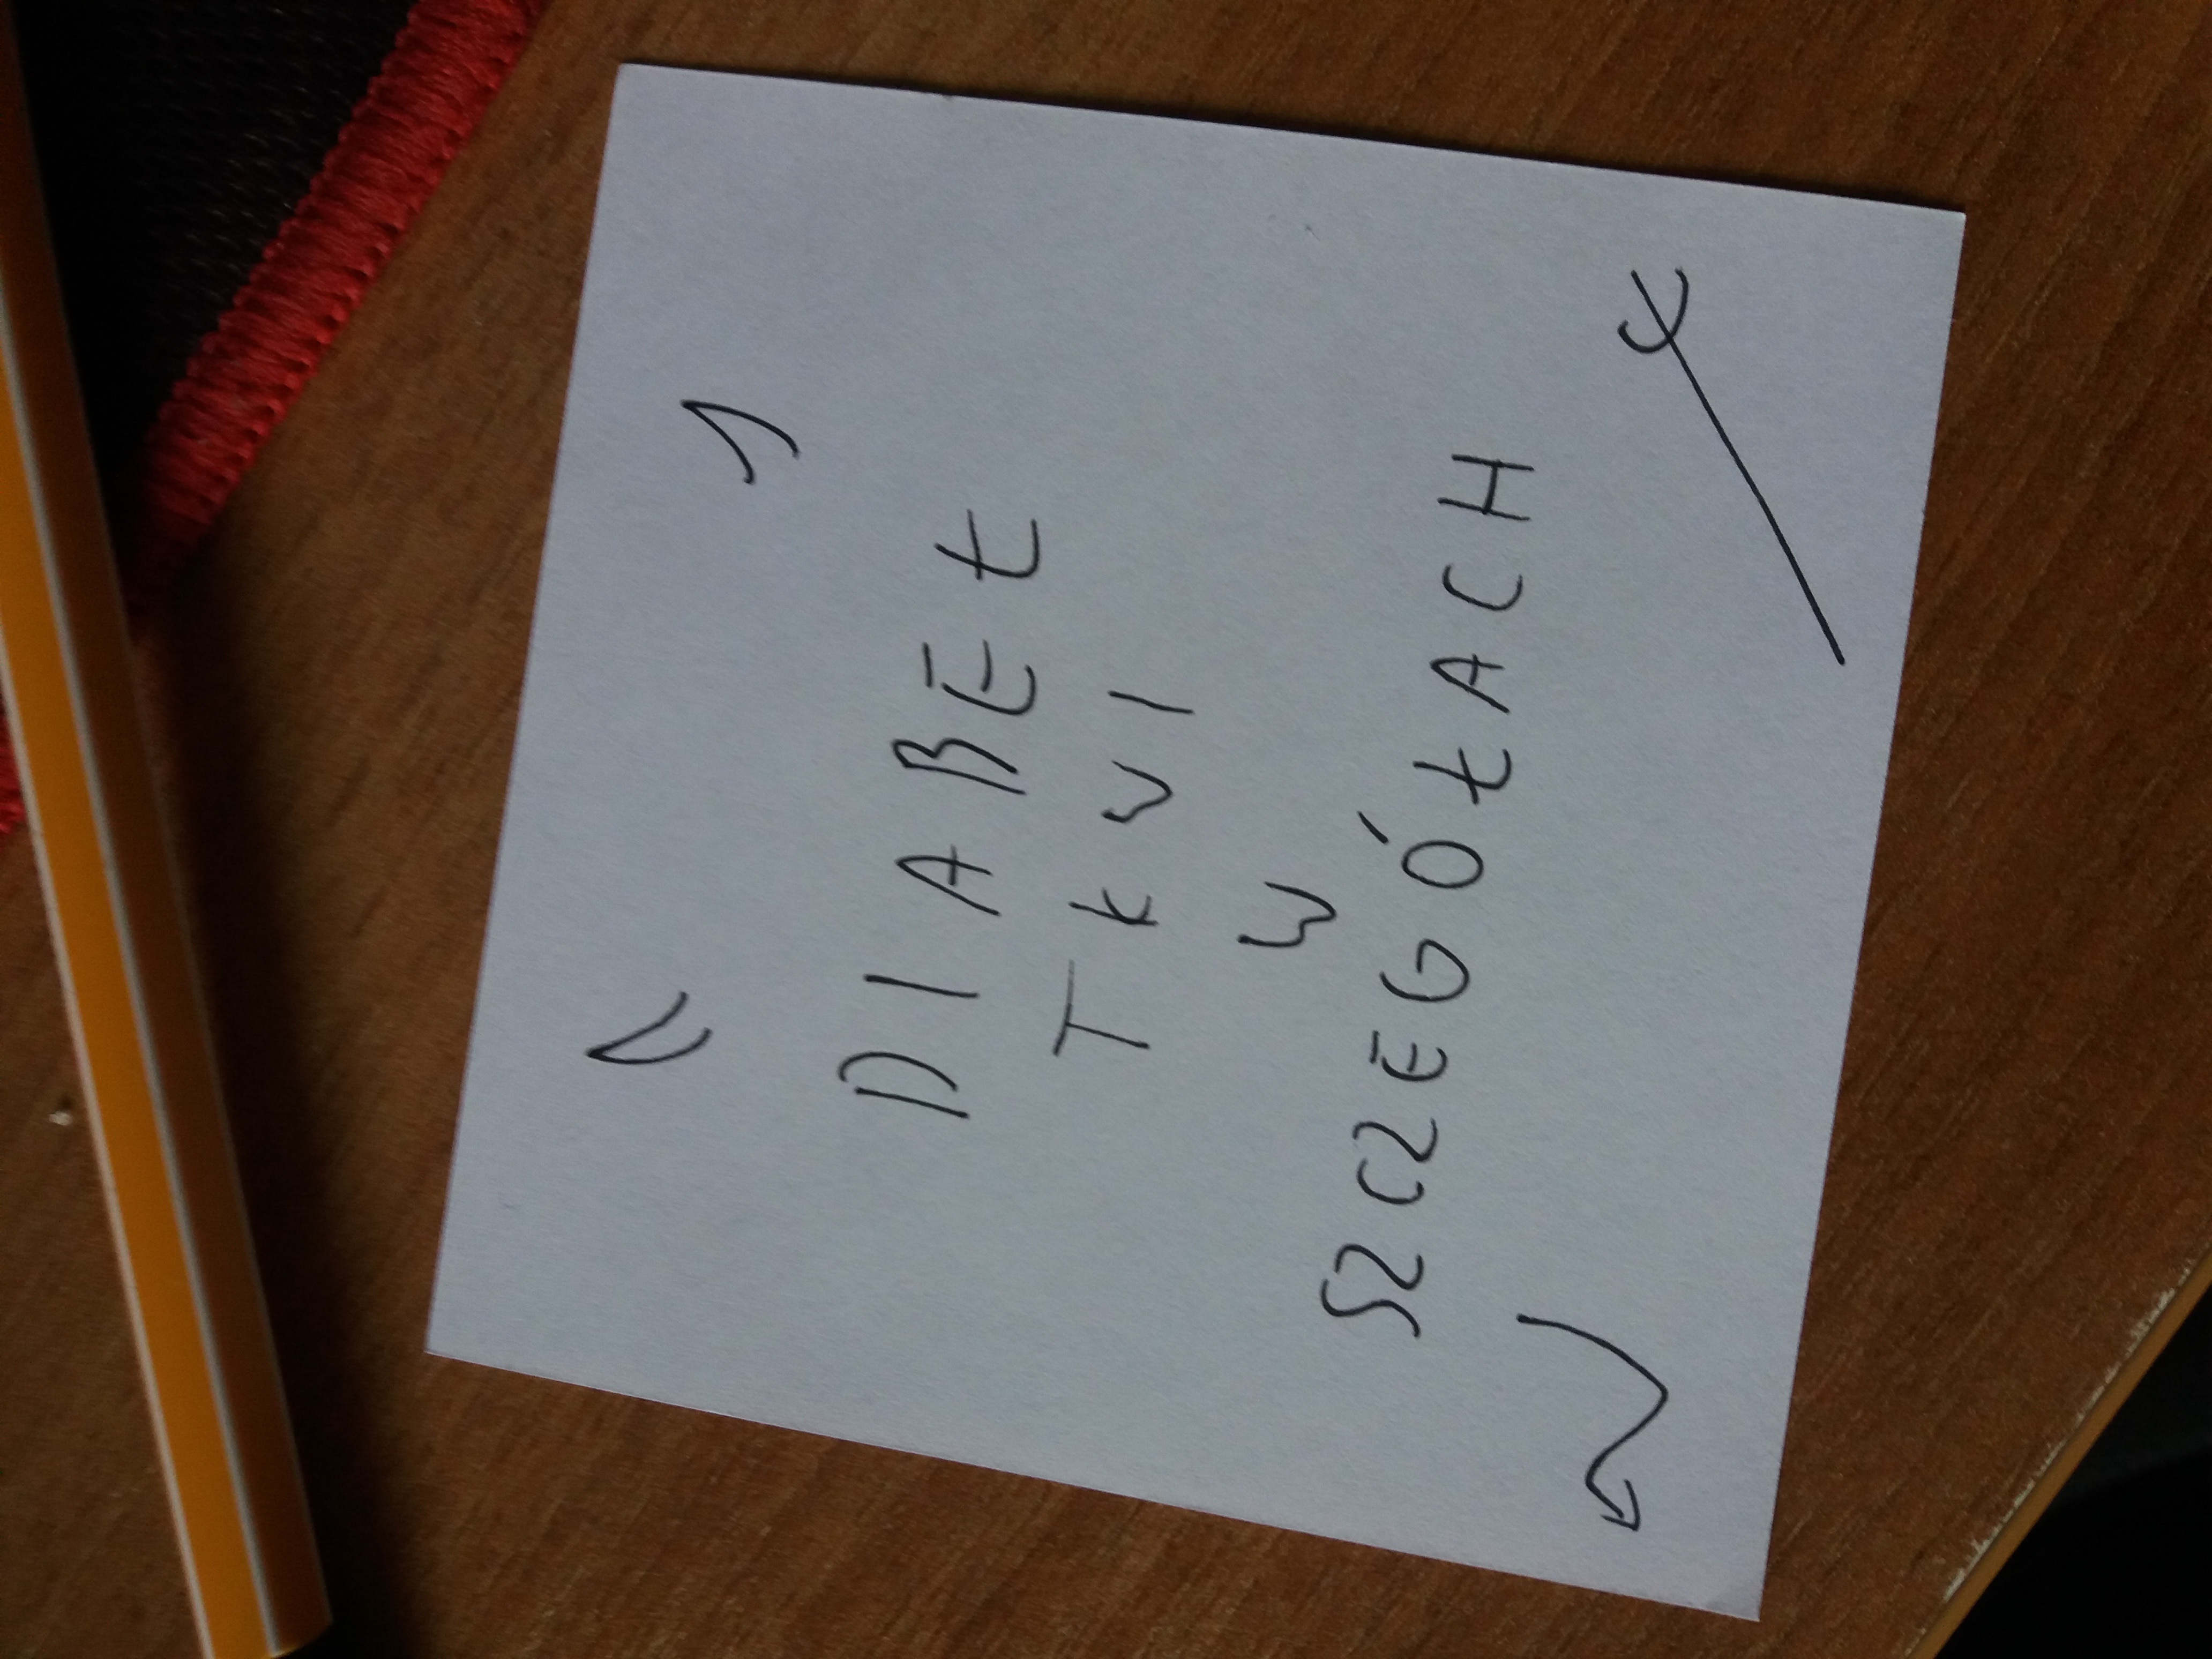 DIABEŁ
TKWI
W
SZCZEGÓŁACH